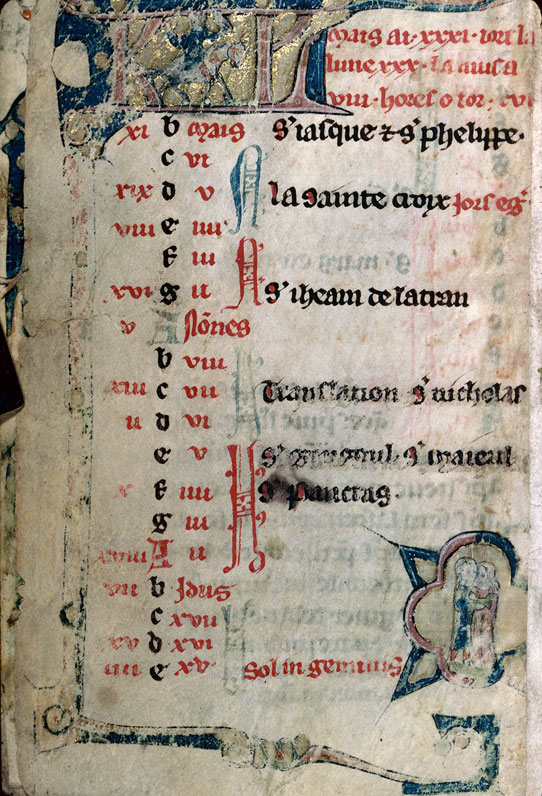 KL Mais at xxxi iors la
lune xxx la nuis a
viii hores o ior xvi
xi b Mais Sr iasque z sr phelippe
c vi
xix d v N la sainte croix iors egr
viii e iiii
f iii
xvi g ii N Sr iheam de latran
v A Nones
b viii
xiii c vii Translation sr nicholas
ii d vi
e v sr maieul
x f iiii Sr Pancras
g iii
xviii A ii
vii b Idus
c xvii
xv d xvi
iiii e xv Sol in geminis